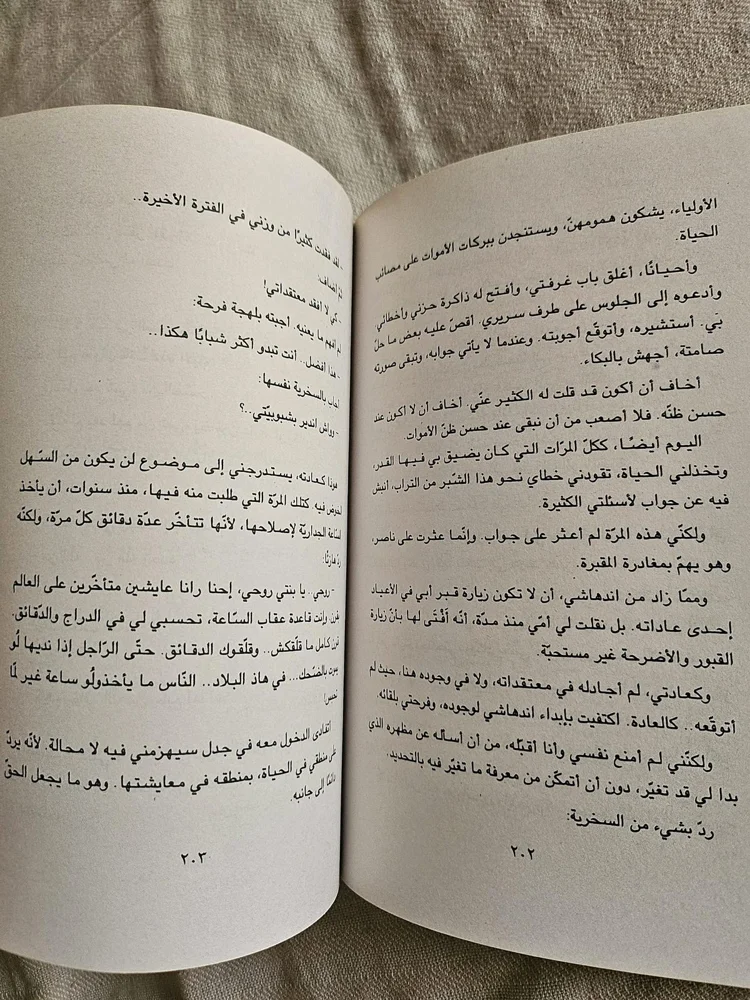 الأولياء، يشكون همومهنّ، ويستنجدن ببركات الأموات على مصائب
الحياة.
وأحيانًا، أغلق باب غرفتي، وأفتح له ذاكرة حزني وأخطائي.
وأدعوه إلى الجلوس على طرف سريري. أقصّ عليه بعض ما حلّ
بي. أستشيره، وأتوقّع أجوبته. وعندما لا يأتي جوابه، وتبقى صورته
صامتة، أجهش بالبكاء.
أخاف أن أكون قد قلت له الكثير عنّي. أخاف أن لا اكون عند
حسن ظنّه. فلا أصعب من أن نبقى عند حسن ظنّ الأموات.
اليوم أيضًا، ككلّ المرّات التي كان يضيق بي فيها القدر،
وتخذلني الحياة، تقودني خطاي نحو هذا الشّبر من التراب، أنبش
فيه عن جواب لأسئلتي الكثيرة.
ولكنّي هذه المرّة لم أعثر على جواب. وإنّما عثرت على ناصر،
وهو يهمّ بمغادرة المقبرة.
وممّا زاد من اندهاشي، أن لا تكون زيارة قبر أبي في الأعياد
إحدى عاداته. بل نقلت لي أمّي منذ مدّة، أنّه أفْتَى لها بأنّ زيارة
القبور والأضرحة غير مستحبّة.
وكعادتي، لم أجادله في معتقداته، ولا في وجوده هنا، حيث لم
أتوقّعه.. كالعادة. اكتفيت بإبداء اندهاشي لوجوده، وفرحتي بلقائه.
ولكنّني لم أمنع نفسي وأنا أقبّله، من أن أسأله عن مظهره الذي
بدا لي قد تغيّر، دون أن أتمكّن من معرفة ما تغيّر فيه بالتحديد.
ردّ بشيء من السخرية:
٢٠٢
- لقد فقدت كثيرًا من وزني في الفترة الأخيرة..
ثمّ أضاف:
- كي لا أفقد معتقداتي!
لم أفهم ما يعنيه. أجبته بلهجة فرحة:
- هذا افضل.. أنت تبدو أكثر شبابًا هكذا..
أجاب بالسخرية نفسها:
- وواش اندير بشبوبيّتي..؟
هوذا كعادته، يستدرجني إلى موضوع لن يكون من السّهل
الخوض فيه. كتلك المرّة التي طلبت منه فيها، منذ سنوات، أن يأخذ
السّاعة الجداريّة لإصلاحها، لأنّها تتأخّر عدّة دقائق كلّ مرّة، ولكنّه
ردّ هازئًا:
- روحي.. يا بنتي روحي، إحنا رانا عايشين متأخّرين على العالم
قرن. وانت قاعدة عقاب السّاعة، تحسبي لي في الدراج والدّقائق.
قرن كامل ما قلّقكش.. وقلّقوك الدقائق. حتّى الرّاجل إذا نديها لُو
يموت بالضّحك... في هاذ البلاد.. النّاس ما يأخذولُو ساعة غير لمّا
تحبس!
أتفادى الدخول معه في جدل سيهزمني فيه لا محالة. لأنّه يردّ
على منطقي في الحياة، بمنطقه في معايشتها. وهو ما يجعل الحقّ
دائمًا إلى جانبه.
٢٠٣